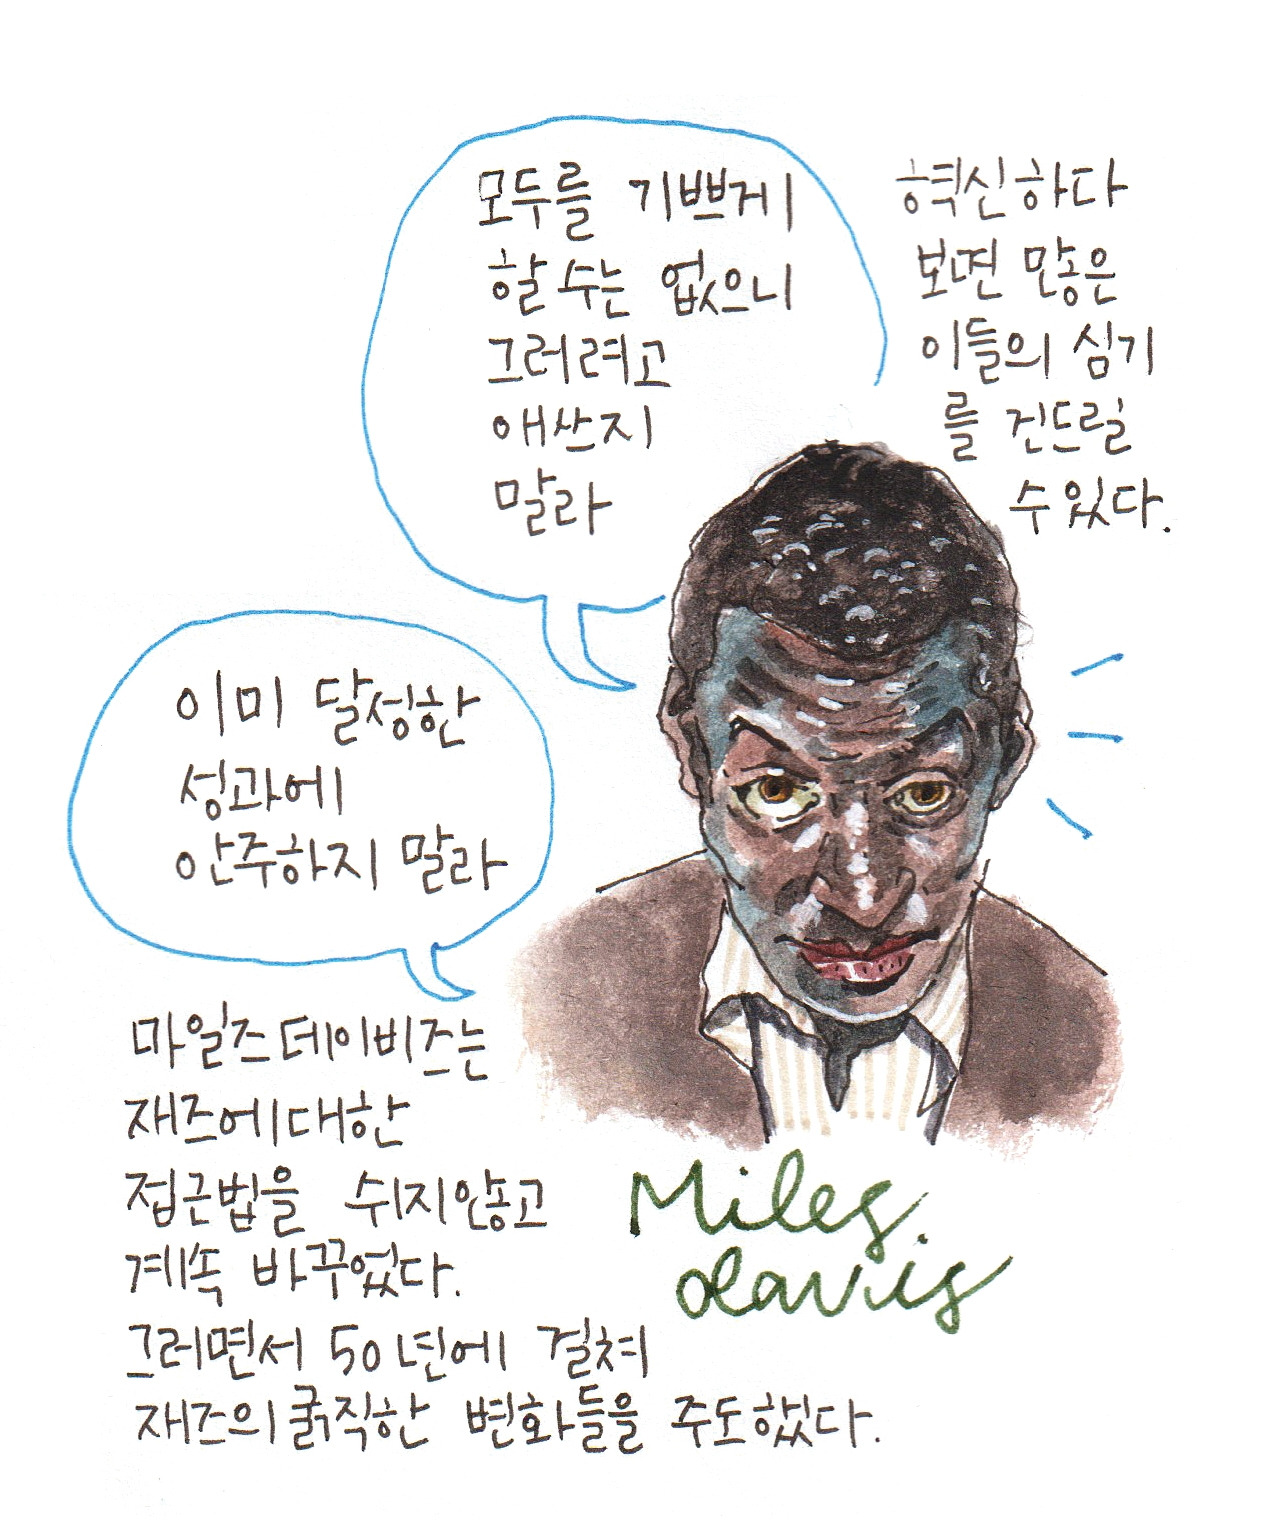 모두를 기쁘게
할 수는 없으니
그러려고
애쓰지
말라
혁신하다
보면 많은
이들의 심기
를 건드릴
수 있다.
이미 달성한
성과에
안주하지 말라
마일즈 데이비즈는
재즈에 대한
접근법을 쉬지않고
계속 바꾸었다.
그러면서 50년에 걸쳐
재즈의 굵직한 변화들을 주도했다.
Miles
davis